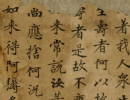 著我人衆
生壽者何以
壽者是故不
來常說汝等
尚應捨何況
如來得阿耨